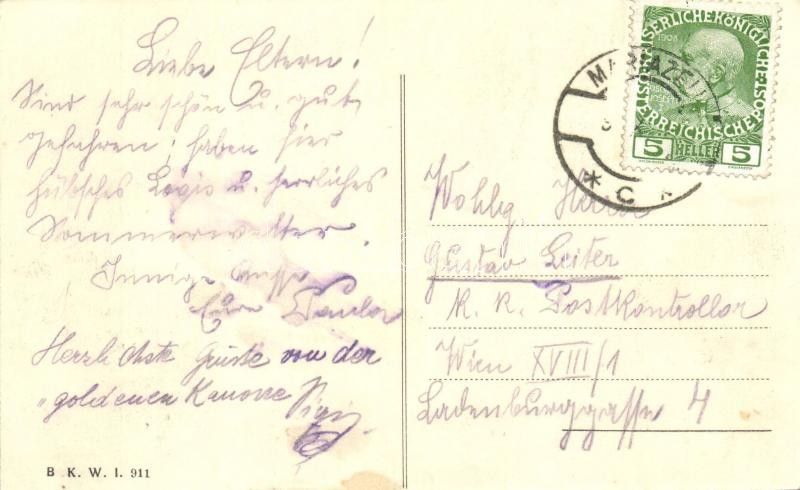 Liebe Eltern!
Sind sehr schön u. gut
gefahren; haben hier
hübsches Logis u. herrliches
Sommerwetter.
Innige
Eure Paula
Herzlichste Grüsse von der
"goldenen Kanone
B K. W. I. 911
KAISERLICHEKÖNIGLICHE
ÖSTERREICHISCHEPOST
1908
5 HELLER 5
MARIAZELL
* C *
Wohlg. Herrn
Gustav Leiter
K. K. Postkontrollor
Wien XVIII/1
Ladenburggasse 4